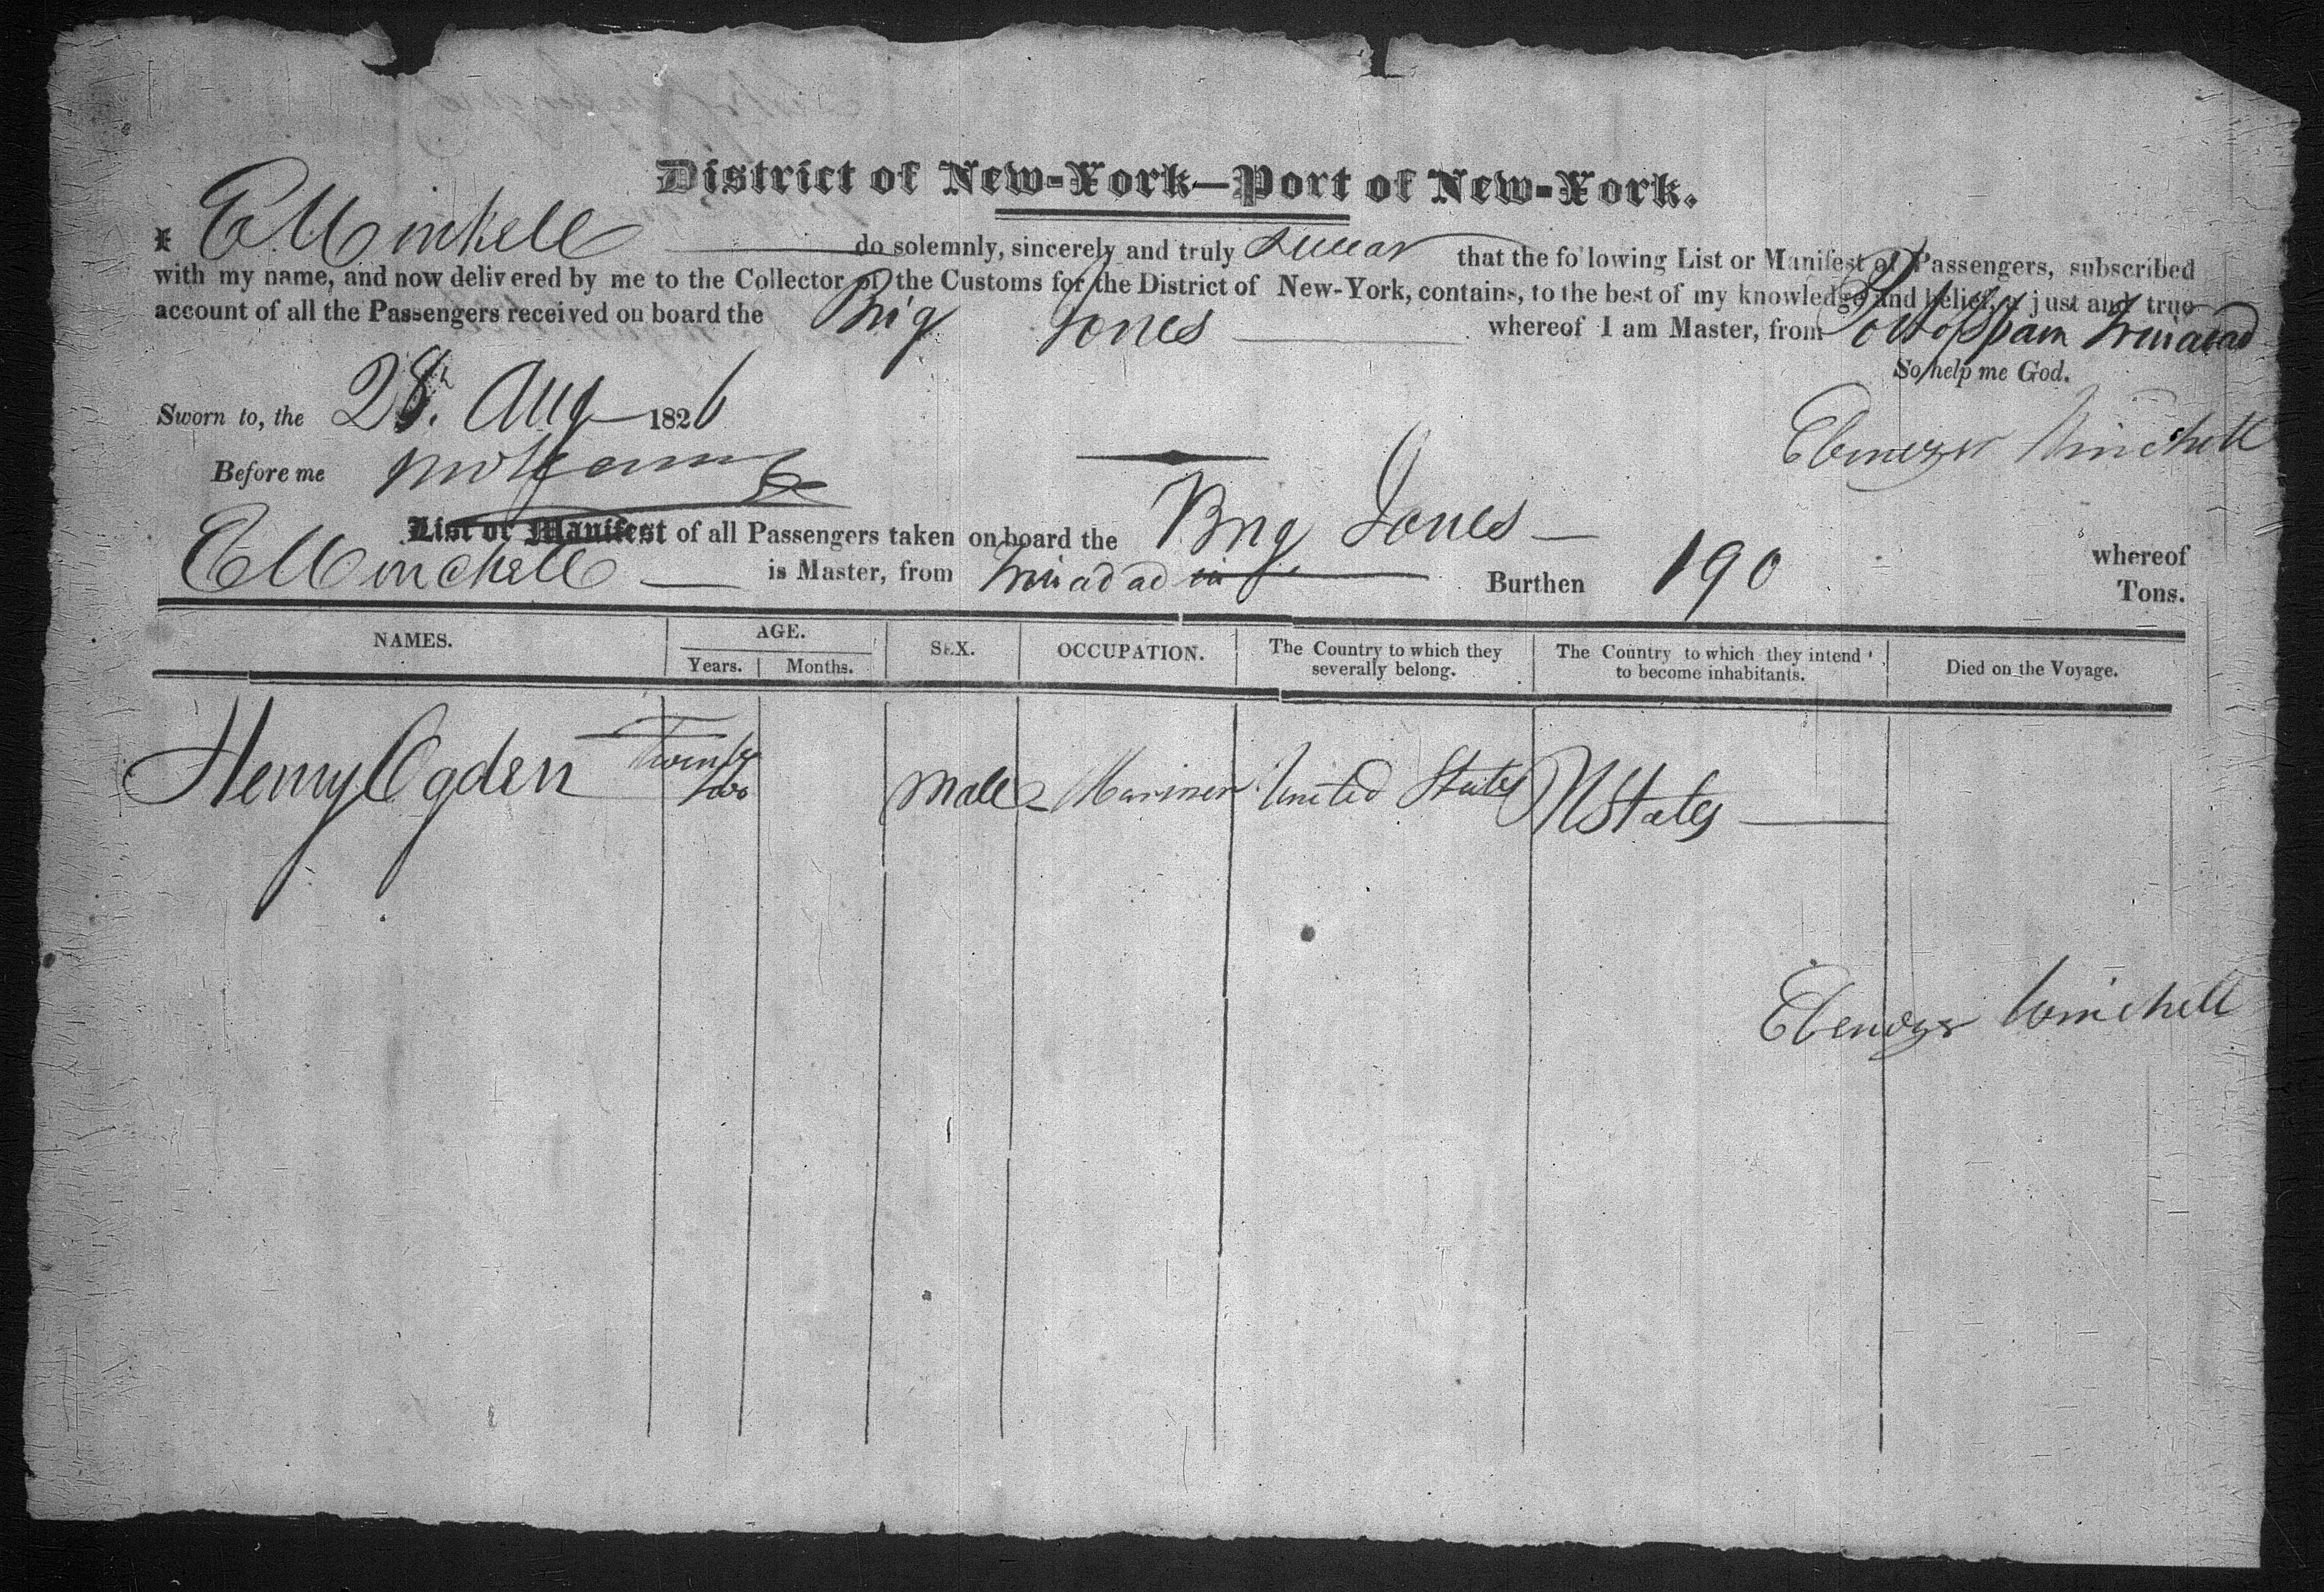 District of New-York—Port of New-York.
I E Winchell do solemnly, sincerely and truly swear that the following List or Manifest of Passengers, subscribed
with my name, and now delivered by me to the Collector of the Customs for the District of New-York, contains, to the best of my knowledge and belief, a just and true
account of all the Passengers received on board the Brig Jones whereof I am Master, from Port of Spain Trinidad
So help me God.
Sworn to, the 28. Aug 1826
Ebenezer Winchell
Before me
List or Manifest of all Passengers taken on board the Brig Jones — whereof
E Winchell — is Master, from Trinidad Burthen 190 Tons.
NAMES. AGE. SEX. OCCUPATION. The Country to which they severally belong. The Country to which they intend to become inhabitants. Died on the Voyage.
Years. Months.
Henry Ogden Twenty two Male Mariner United States U States —
Ebenezer Winchell